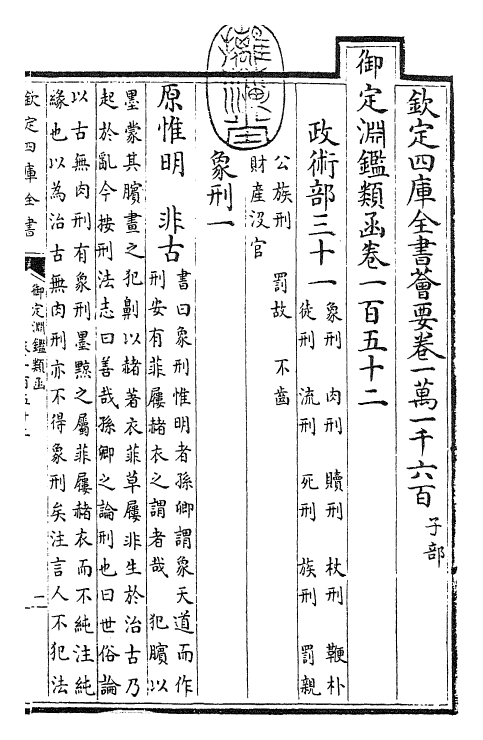 欽定四庫全書薈要卷一萬一千六百 子部
御定淵鑑類函卷一百五十二
政術部三十一
象刑 肉刑 贖刑 杖刑 鞭朴
徒刑 流刑 死刑 族刑 罰親
公族刑 罰故 不齒
財産沒官
象刑一
原惟明 非古
書曰象刑惟明者孫卿謂象天道而作
刑安有菲屨赭衣之謂者哉 犯臏以
墨蒙其臏畫之犯劓以赭著衣菲草屨非生於治古乃
起於亂今按刑法志曰善哉孫卿之論刑也曰世俗論
以古無肉刑有象刑墨黥之屬菲屨赭衣而不純注純
緣也以為治古無肉刑亦不得象刑矣注言人不犯法
欽定四庫全書
御定淵鑑類函
卷一百五十二
一